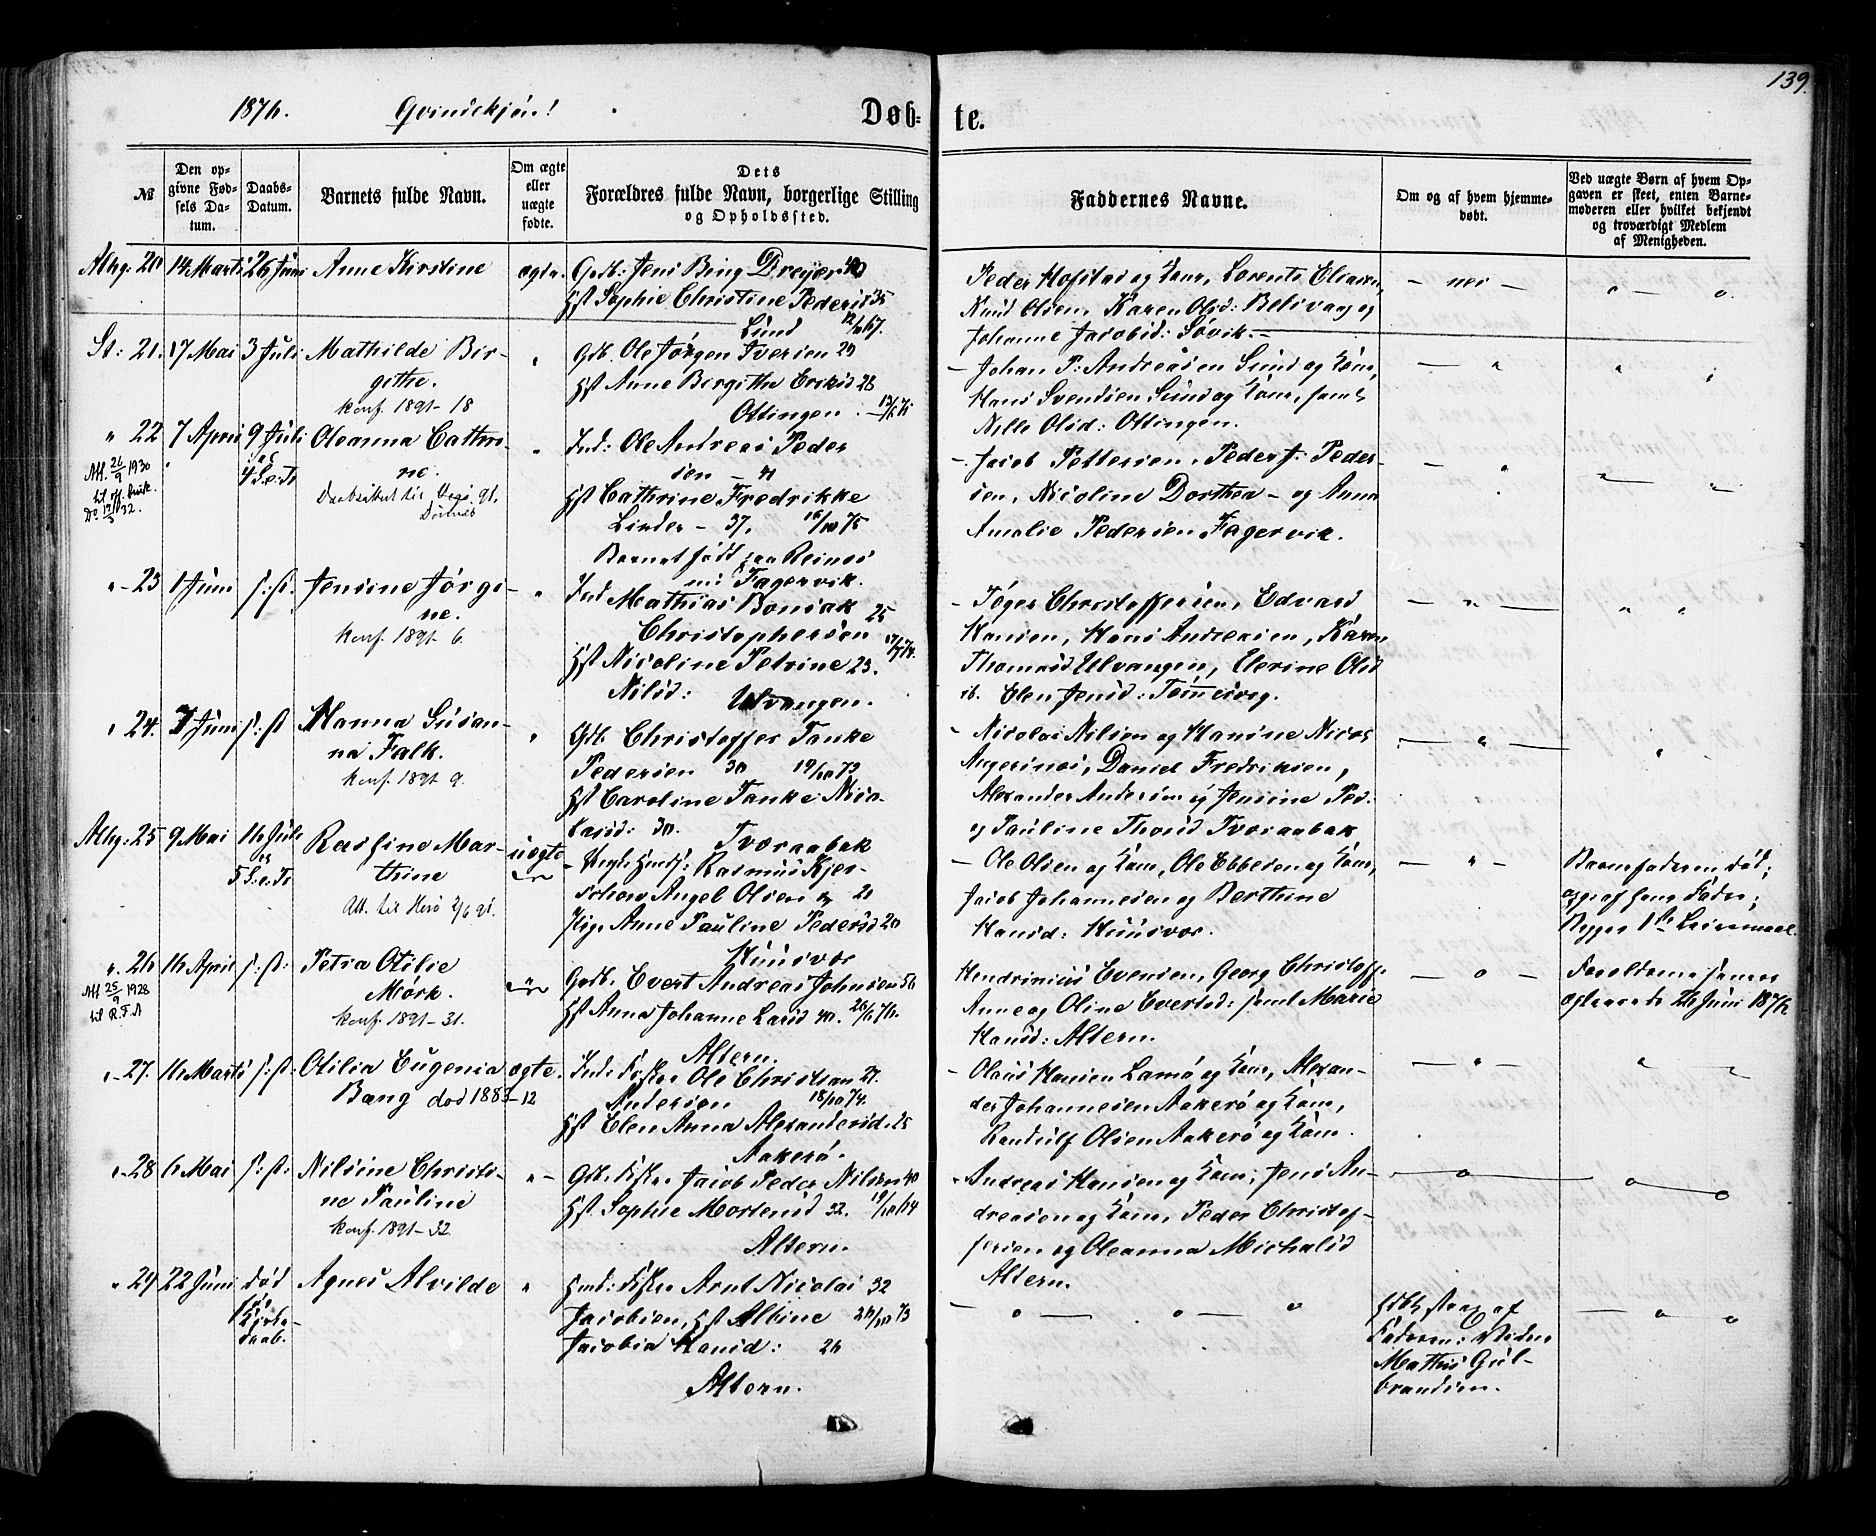 139.
1876. Qvindekjön! Døb- te.
№ | Den opgivne Fødsels Datum. | Daabs-Datum. | Barnets fulde Navn. | Om ægte eller uægte fødte. | Dets Forældres fulde Navn, borgerlige Stilling og Opholdssted. | Faddernes Navne. | Om og af hvem hjemmedøbt. | Ved uægte Børn af hvem Opgaven er skeet, enten Barnemoderen eller hvilket bekjendt og troværdigt Medlem af Menigheden.
20 14 Marts 26 Juni Anne Kirstine ægte. Gdb: Jens Bing Dreyer 40
Hst Sophie Christine Pedersd 35
Lund 12/10 67.
Peder Hofstad og Kone, Lorents Eliasen,
Knud Olsen, Karen Olsd: Belsvaag og
Johanne Jacobsd: Søvik.
— nei —
St: 21. 17 Mai 3 Juli Mathilde Bir-
githe.
Konf. 1891-18
Gdb. Ole Jørgen Iversen 29
Hst Anne Birgithe Eriksd 28
Ottingen.
Johan P: Andreasen Sund og Kone,
Hans Svendsen Sund og Kone, samt
Nille Olsd: Ottingen.
" 22 7 April 9 Juli Oleanna Cathri-
4 S. e. Tr ne.
Att. 26/9 1930
Ind: Ole Andreas Peder
sen - 41
Hst Cathrine Fredrikke
Linder - 37. 16/10 75
Barnet født paa Reinøs
Fagervik.
Jacob Pettersen, Peder J. Peder-
sen, Nicoline Dorthea - og Anna
Amalie Pedersen Fagervik.
"- 23 1 Juni s: d. Jensine Jørgi-
ne.
Konf. 1891-6.
Ind Mathias Bonsak 25
Christophersen
Hst Nicoline Petrine 23.
Nilsd: Ulvangen.
Tøger Christoffersen, Edvard
Hansen, Hans Andreasen, Karen
Thomasd Ulvangen, Elerine Olsd
ib. Elen Jensd:
" 24. 7 Juni s: d Hanna Susan-
na Falk.
Konf. 1891 9.
Gdb. Christoffer Tanke
Pedersen 30 19/10 73
Hst Caroline Tanke Nico-
laisd: 30. Tværaabak
Nicolai Nilsen og Hanine Nicol
Angersnes, Daniel Fredriksen,
Alexander Andersen og Jensine Ped.
og Pauline Thorsd Tværaabak
25 9 Mai 16 Juli Rasfine Mar-
5 S. e. Tr thine
Att. til Herø 2/6 91.
uægte
Rasmus Kjer-
schow Angel Olsen og 21
Pige Anne Pauline Pedersd 20
Huusvær
Ole Olsen og Kone, Ole Ebbesen og Kone,
Jacob Johannesen og Berthine
Hansd: Huusvær.
Barnefaderen død;
opg: af hans Fader;
Begges 1ste Leiermaal.
". 26 16 April s: d: Petra Otilie
Mørk.
Konf. 1891-31.
Att 25/9 1928
til R.F.A
Gdb. Evert Andreas Johnsen 56
Hst Anna Johanne Larsd 40. 26/6 76.
Altern.
Hendrinius Evensen, Georg Christoff.
Anne og Oline Evertsd: samt Marie
Hansd: Altern.
— o —
Forældrene senere
ægteviede 26 Juni 1876
"- 27. 16 Marts s: d: Otilia Eugenia ægte.
Bang død 1883-12
Ind: Fisker Ole Christian 27.
Andersen 18/10 74.
Hst Elen Anna Alexandersd. 25
Aakerø.
Olaus Hansen Lamø og Kone, Alexan-
der Johannesen Aakerø og Kone,
Randulf Olsen Aakerø og Kone.
"- 28 6 Mai s: d: Nilsine Christi-
ne Pauline
Konf. 1891-32
Gdb. Fisker Jacob Peder Nilsen 40
Hst. Sophie Mortensd 32. 19/10 64
Altern.
Andreas Hansen og Kone, Jens An-
dreasen og Kone, Peder Christof-
fersen og Oleanna Michalsd
Altern.
" 29 22 Juni død
før
Kirke-
daab.
Agnes Alvilde
Hmd: Fisker Arnt Nicolai 32
Jacobsen, Hst Albine 20/10 73
Jacobia Hansd: 26
Altern.
hdbt strax af
Faderen: Vidne
Mathis Gul-
brandsen.